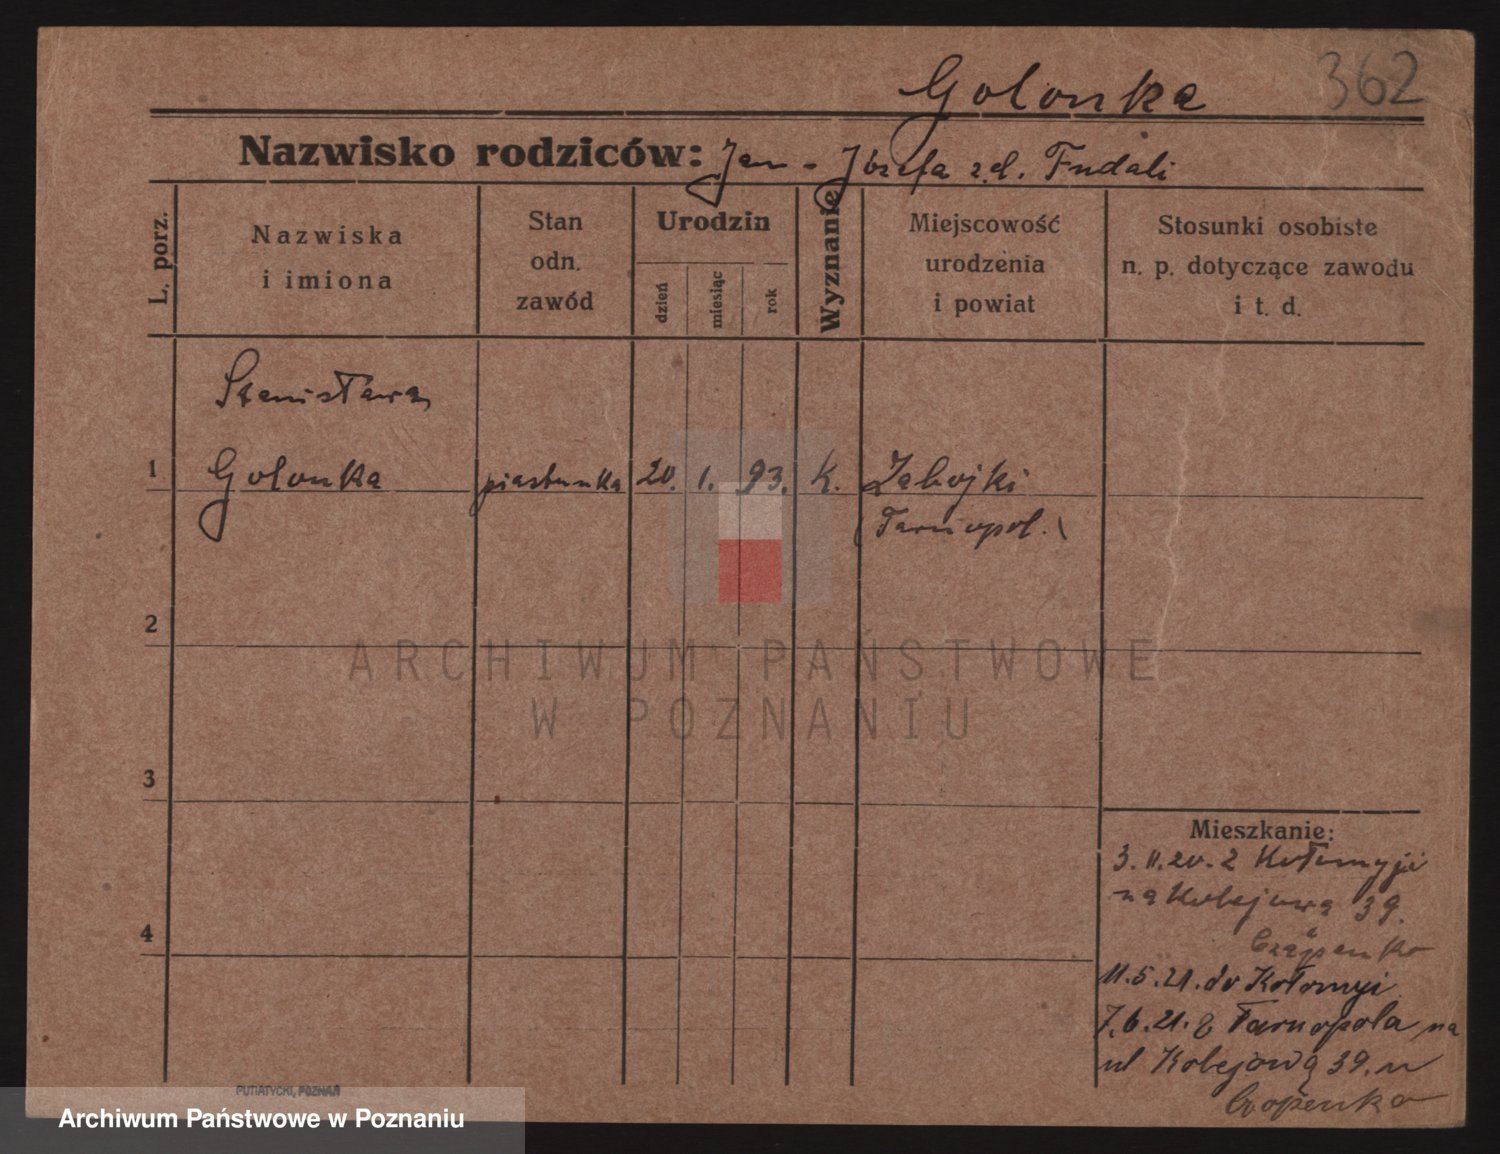 Golonka 362
Nazwisko rodziców: Jan - Józefa z d. Fudali
L. porz.
Nazwiska
i imiona
Stan
odn.
zawód
Urodzin
dzień
miesiąc
rok
Wyznanie
Miejscowość
urodzenia
i powiat
Stosunki osobiste
n. p. dotyczące zawodu
i t. d.
Stanisława
1 Golonka piastunka 20. 1. 93. K. Zabojki
(Tarnopol.)
2
ARCHIWUM PAŃSTWOWE
W POZNANIU
3
Mieszkanie:
3.11.20. z Kołomyji
na Kolejową 39.
4
11.5.21. do Kołomyi
7.6.21. z Tarnopola na
ul Kolejową 39. u
PUTIATYCKI, POZNAŃ
Archiwum Państwowe w Poznaniu